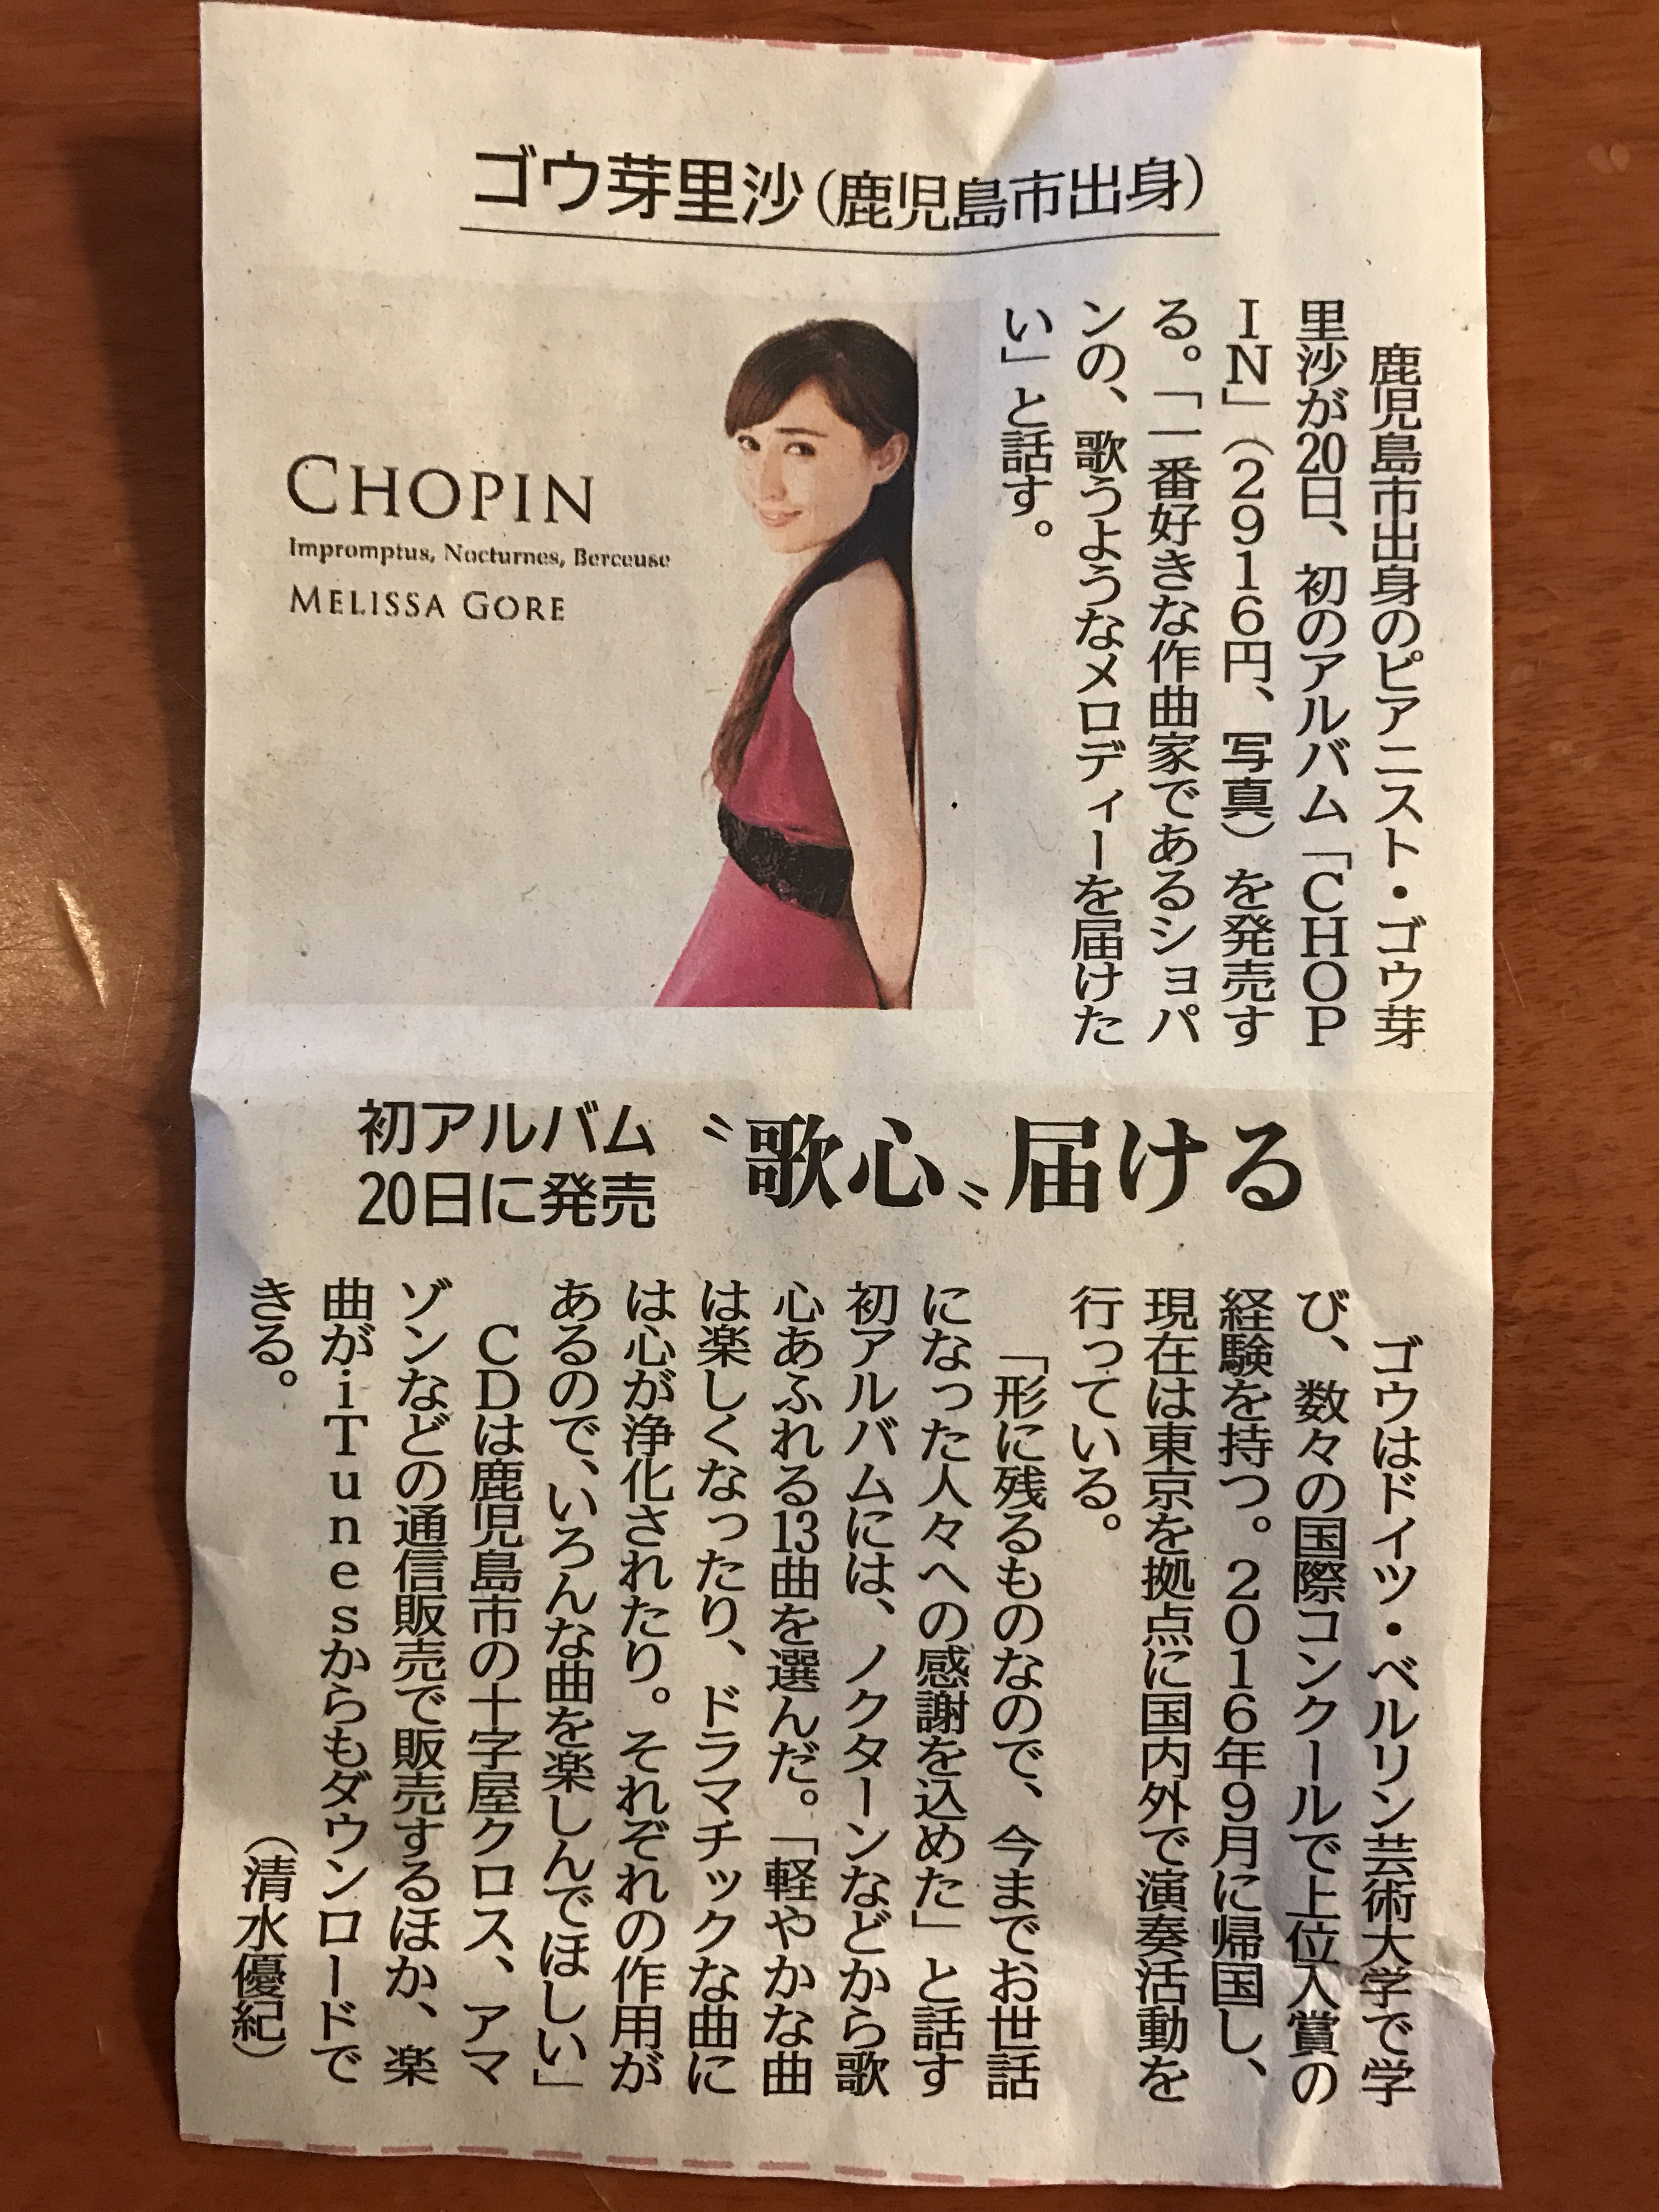 ゴウ芽里沙(鹿児島市出身)
鹿児島市出身のピアニスト・ゴウ芽
里沙が20日、初のアルバム「CHOP
IN」(2916円、写真)を発売す
る。「一番好きな作曲家であるショパ
ンの、歌うようなメロディーを届けた
い」と話す。
CHOPIN
Impromptus, Nocturnes, Berceuse
MELISSA GORE
〝歌心〟届ける
初アルバム
20日に発売
ゴウはドイツ・ベルリン芸術大学で学
び、数々の国際コンクールで上位入賞の
経験を持つ。2016年9月に帰国し、
現在は東京を拠点に国内外で演奏活動を
行っている。
「形に残るものなので、今までお世話
になった人々への感謝を込めた」と話す
初アルバムには、ノクターンなどから歌
心あふれる13曲を選んだ。「軽やかな曲
は楽しくなったり、ドラマチックな曲に
は心が浄化されたり。それぞれの作用が
あるので、いろんな曲を楽しんでほしい」
CDは鹿児島市の十字屋クロス、アマ
ゾンなどの通信販売で販売するほか、楽
曲がiTunesからもダウンロードで
きる。
(清水優紀)